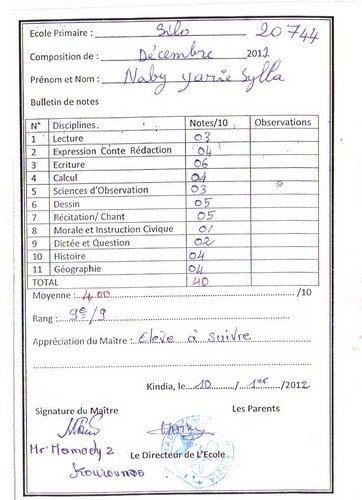 Ecole Primaire : Silo 20744
Composition de : Décembre 2012
Prénom et Nom : Naby yarie Sylla
Bulletin de notes
N° Disciplines Notes/10 Observations
1 Lecture 03
2 Expression Conte Rédaction 04
3 Ecriture 06
4 Calcul 04
5 Sciences d'Observation 03
6 Dessin 05
7 Récitation/ Chant 05
8 Morale et Instruction Civique 01
9 Dictée et Question 02
10 Histoire 04
11 Géographie 04
TOTAL 40
Moyenne : 4,00 /10
Rang : 9e/9
Appréciation du Maître : Elève à suivre
Kindia, le 10 / 1er /2012
Signature du Maître Les Parents
Mr. Mamady 2
Kourouma
Le Directeur de L'Ecole